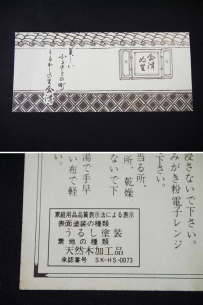 美しい
ふるさとの町
うるわしの里会津
会津
ぬ里
浸さないで下さい。
みがき粉 電子レンジ
下さい。
当る所、
所、乾燥
ないで下
湯で手早
い布で軽
家庭用品品質表示法による表示
表面塗装の種類
うるし塗装
素地の種類
天然木加工品
承認番号 SK-HS-0073